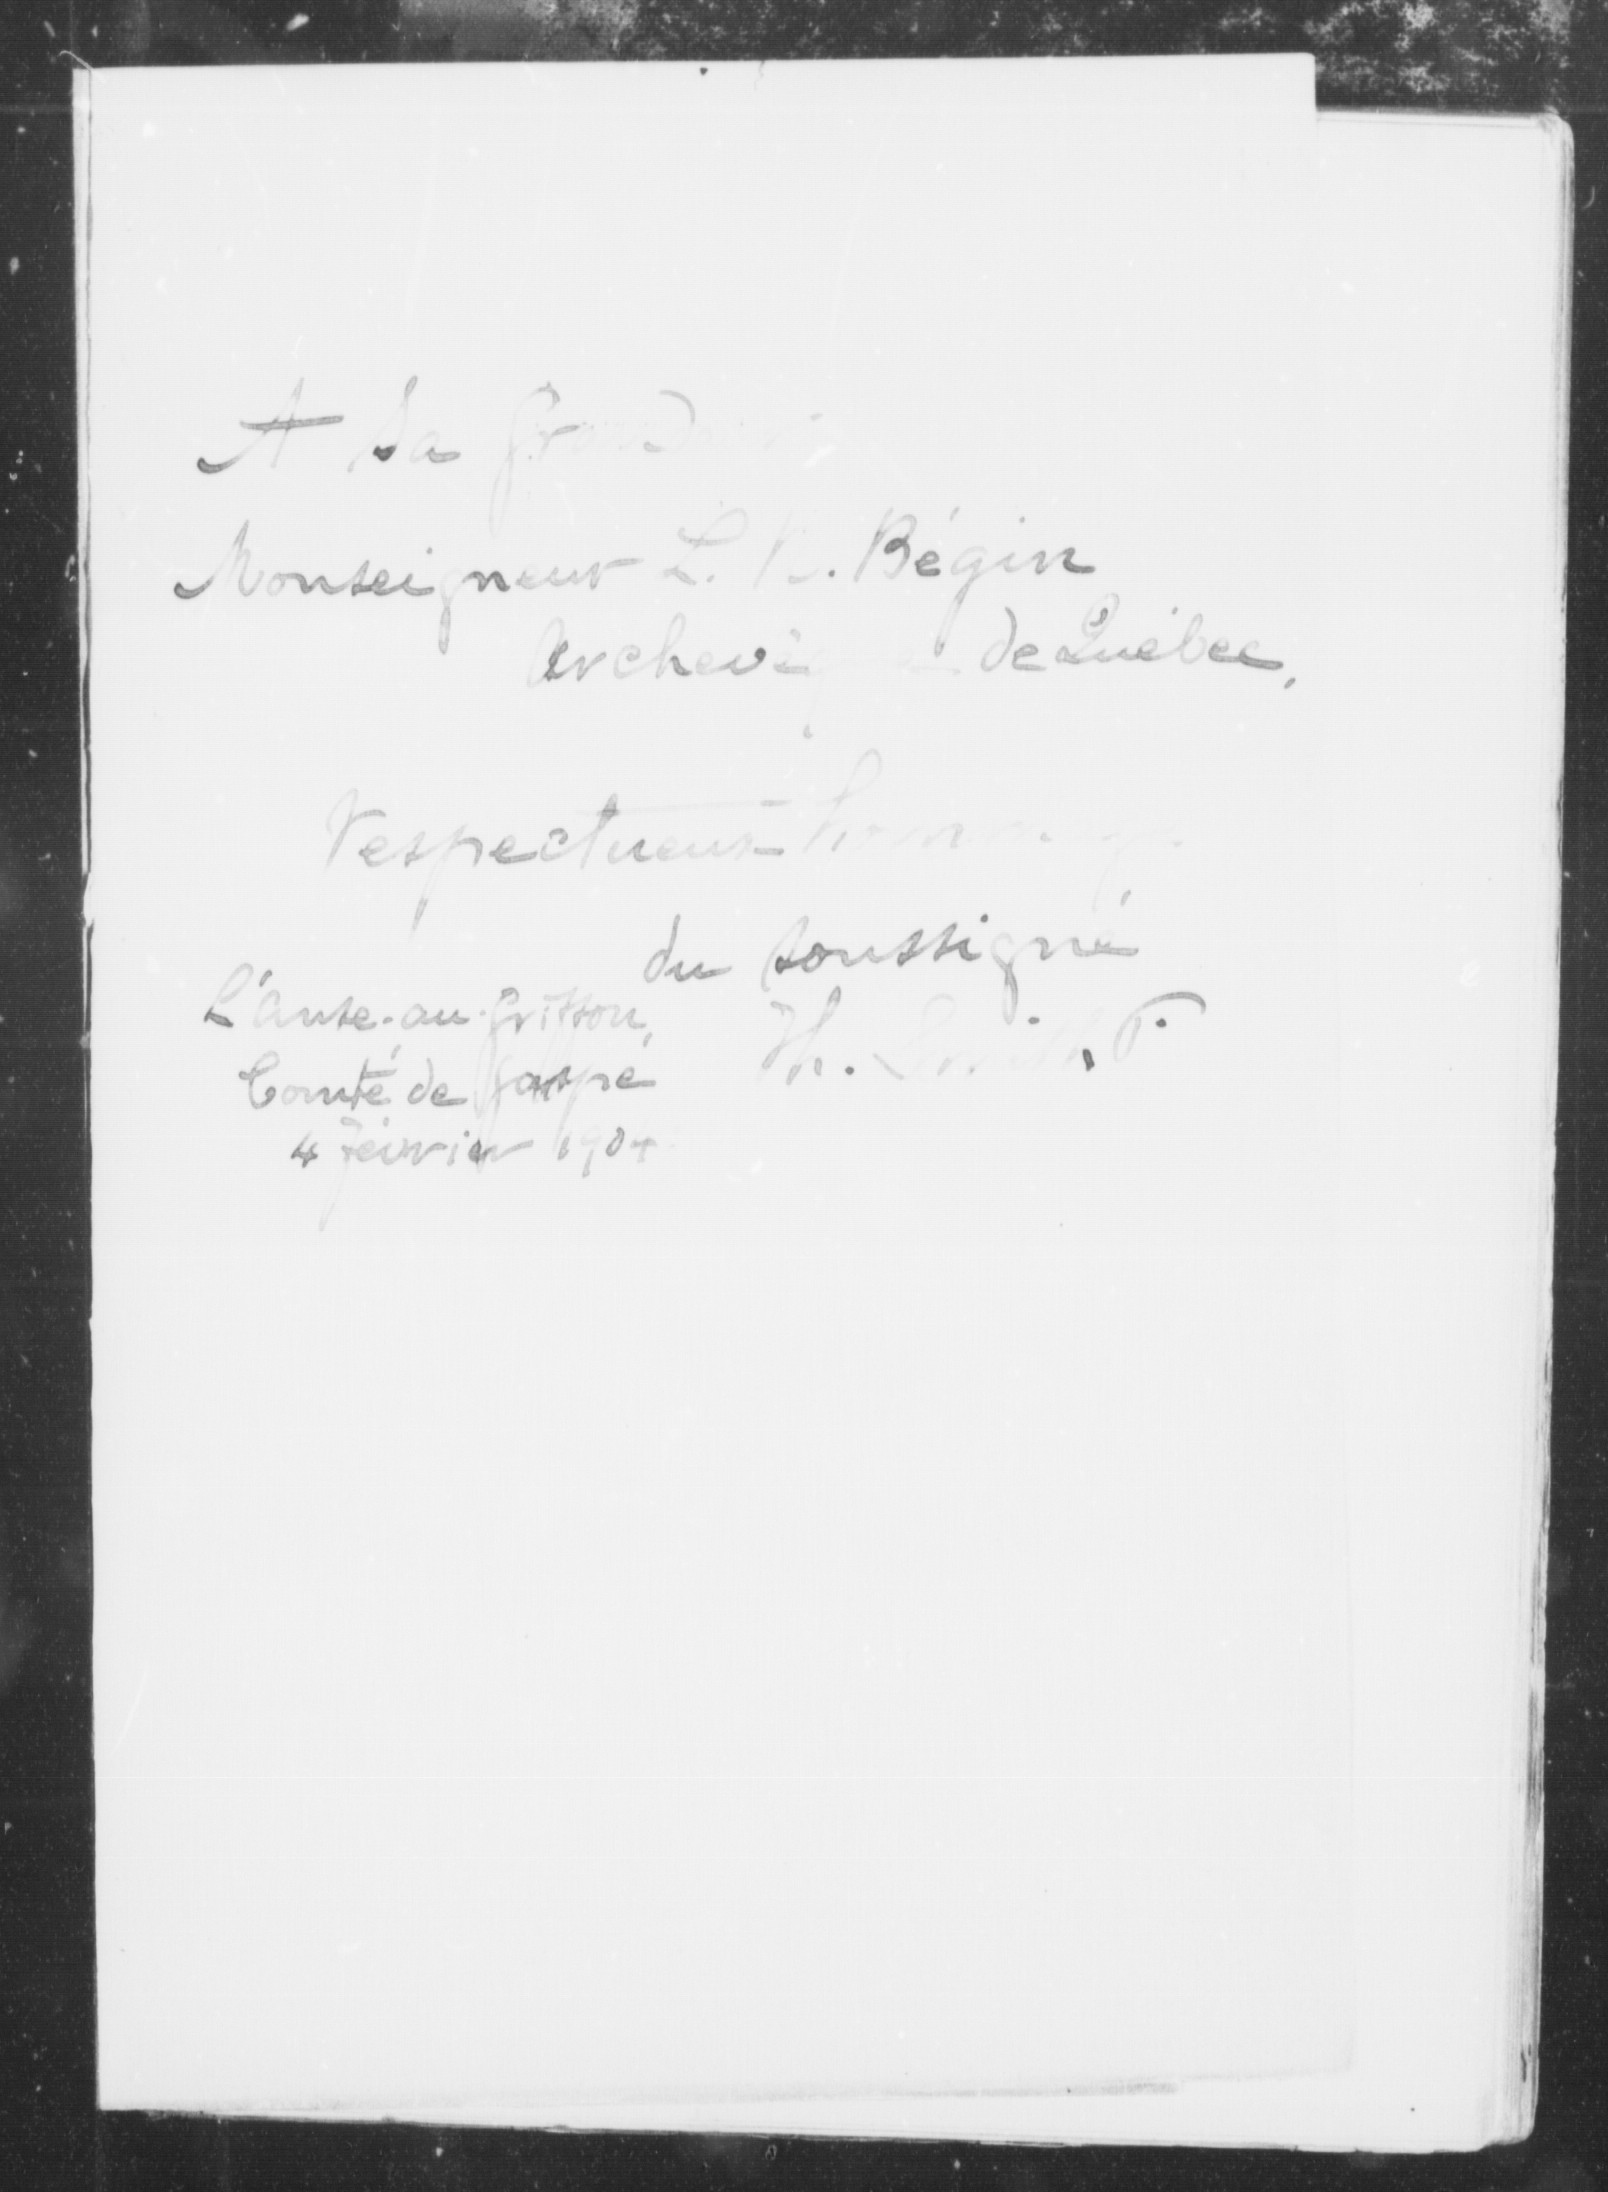 A Sa Grandeur
Monseigneur L. N. Bégin
Archevêque de Québec,
respectueux hommage
du soussigné
L'Anse-au-Griffon,
Comté de Gaspé
4 février 1904
Th.